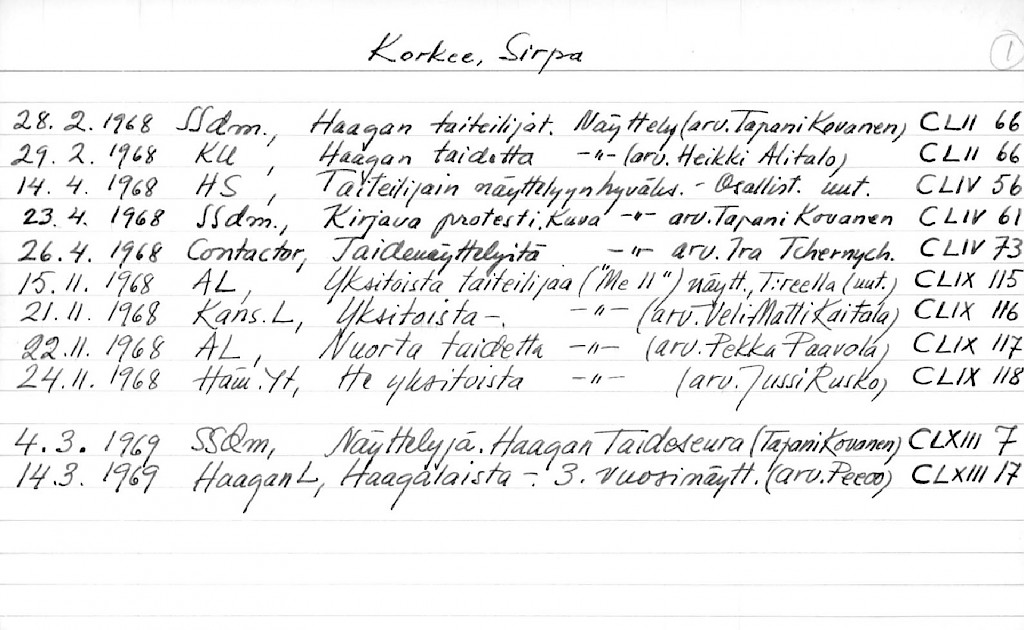 Korkee, Sirpa 1
28. 2. 1968 SSdm., Haagan taiteilijat. Näyttely (arv. Tapani Kovanen) CLII 66
29. 2. 1968 KU , Haagan taidetta -"- (arv. Heikki Alitalo) CLII 66
14. 4. 1968 HS , Taiteilijain näyttelyyn hyväks. - Osallist. uut. CLIV 56
23. 4. 1968 SSdm., Kirjava protesti. Kuva -"- arv. Tapani Kovanen CLIV 61
26. 4. 1968 Contactor, Taidenäyttelyitä -"- arv. Ira Tchernych. CLIV 73
15. 11. 1968 AL, Yksitoista taiteilijaa ("Me 11") näytt., T:reella (uut.) CLIX 115
21. 11. 1968 Kans. L, Yksitoista -. -"- (arv. Veli-Matti Kaitala) CLIX 116
22. 11. 1968 AL , Nuorta taidetta -"- (arv. Pekka Paavola) CLIX 117
24. 11. 1968 Häm. Yt, He yksitoista -"- (arv. Jussi Rusko) CLIX 118
4. 3. 1969 SSdm, Näyttelyjä. Haagan Taideseura (Tapani Kovanen) CLXIII 7
14. 3. 1969 Haagan L, Haagalaista -. 3. vuosinäytt. (arv. Peeoo) CLXIII 17